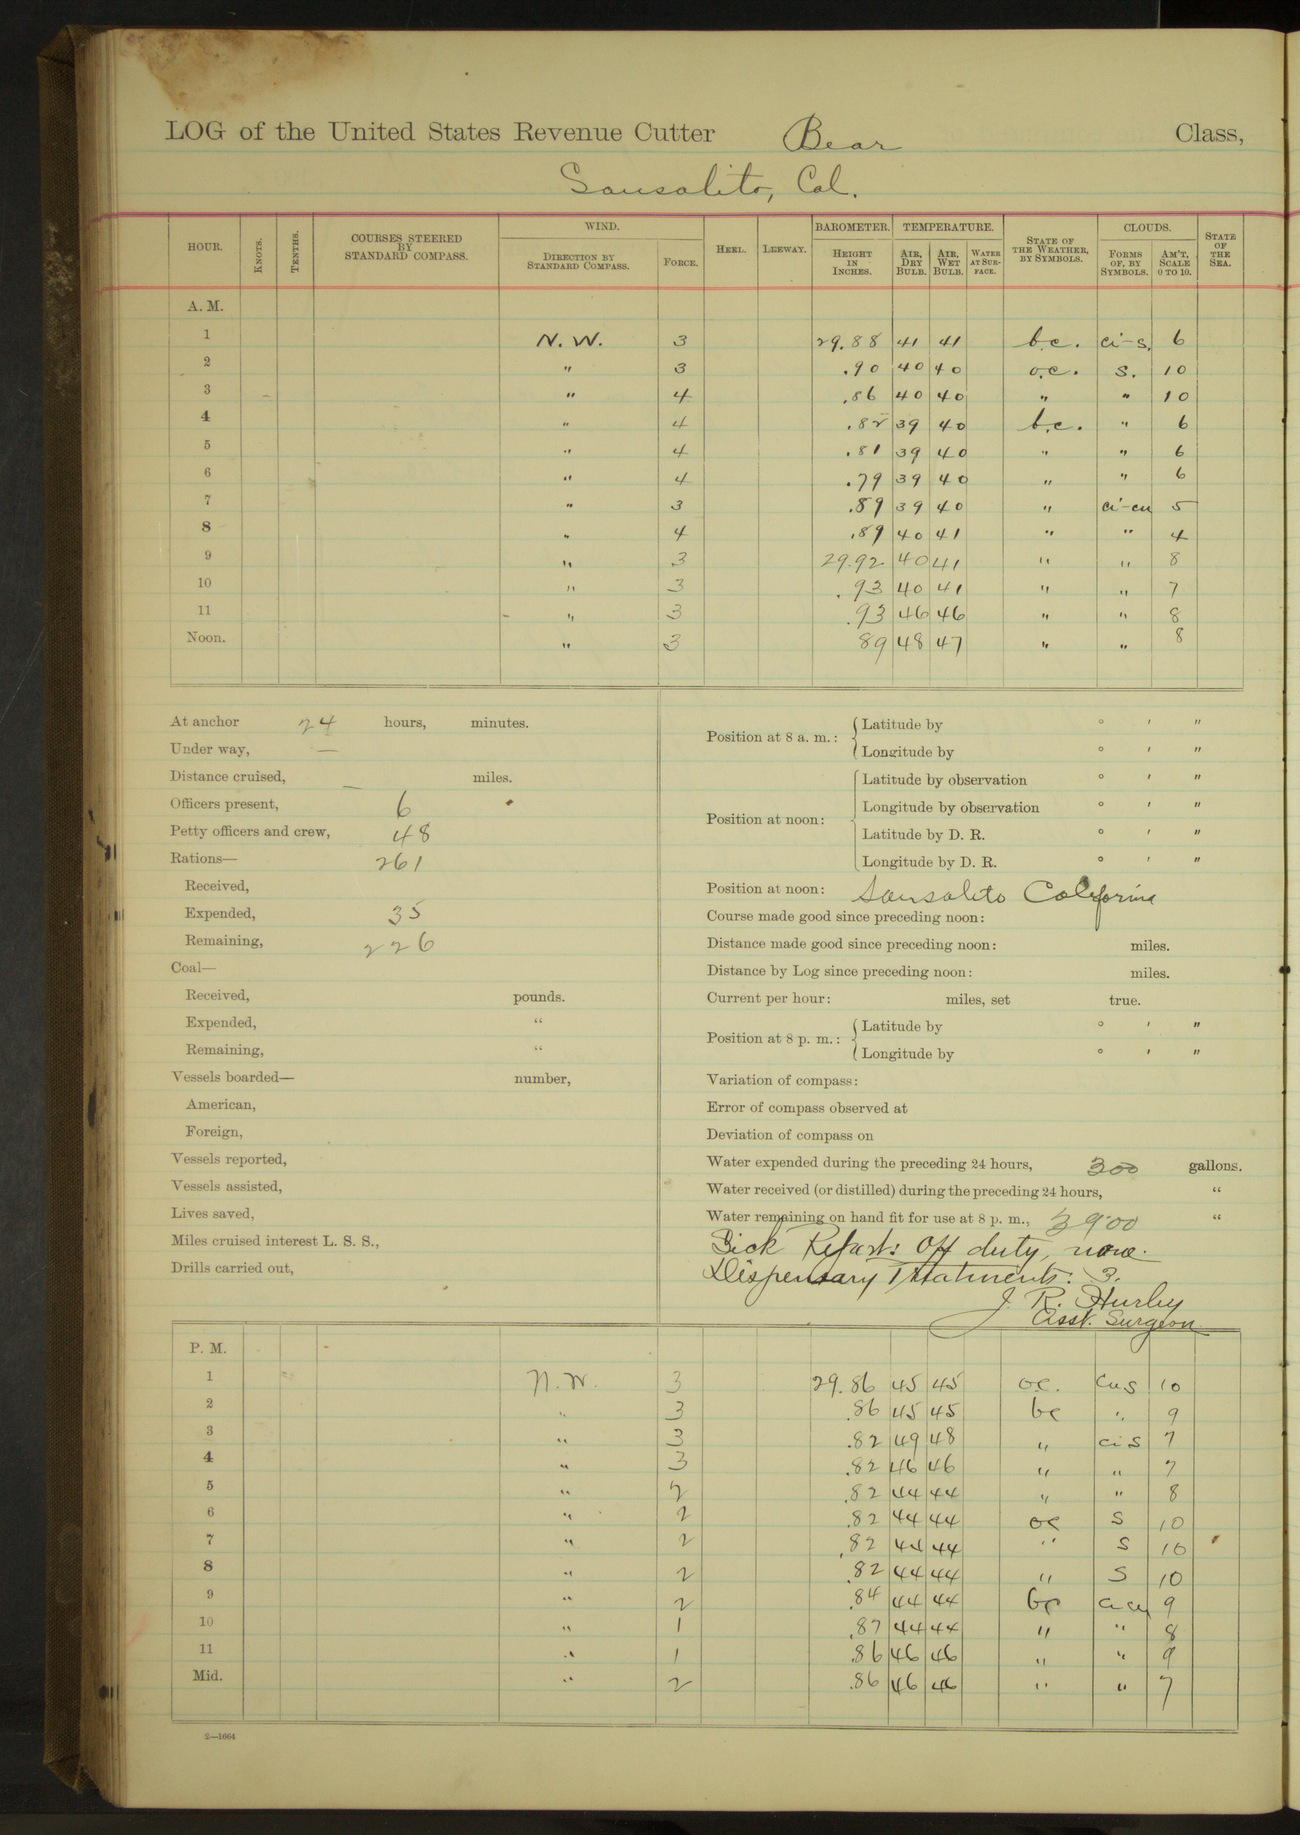 LOG of the United States Revenue Cutter Bear Class,
Sausalito, Cal.
HOUR. KNOTS. TENTHS. COURSES STEERED BY STANDARD COMPASS. WIND. DIRECTION BY STANDARD COMPASS. FORCE. HEEL. LEEWAY. BAROMETER. HEIGHT IN INCHES. TEMPERATURE. AIR, DRY BULB. AIR, WET BULB. WATER AT SURFACE. STATE OF THE WEATHER, BY SYMBOLS. CLOUDS. FORMS OF, BY SYMBOLS. AM'T, SCALE 0 TO 10. STATE OF THE SEA.
A. M.
1 N. W. 3 29.88 41 41 b.c. ci-s. 6
2 " 3 .90 40 40 o.c. s. 10
3 " 4 .86 40 40 " " 10
4 " 4 .82 39 40 b.c. " 6
5 " 4 .81 39 40 " " 6
6 " 4 .79 39 40 " " 6
7 " 3 .89 39 40 " ci-cu 5
8 " 4 .89 40 41 " " 4
9 " 3 29.92 40 41 " " 8
10 " 3 .93 40 41 " " 7
11 " 3 .93 46 46 " " 8
Noon. " 3 89 48 47 " " 8
At anchor 24 hours, minutes.
Under way, —
Distance cruised, — miles.
Officers present, 6
Petty officers and crew, 48
Rations— 261
Received,
Expended, 35
Remaining, 226
Coal—
Received, pounds.
Expended, "
Remaining, "
Vessels boarded— number,
American,
Foreign,
Vessels reported,
Vessels assisted,
Lives saved,
Miles cruised interest L. S. S.,
Drills carried out,
Position at 8 a. m.: Latitude by ° ' "
Longitude by ° ' "
Position at noon: Latitude by observation ° ' "
Longitude by observation ° ' "
Latitude by D. R. ° ' "
Longitude by D. R. ° ' "
Position at noon: Sausalito California
Course made good since preceding noon:
Distance made good since preceding noon: miles.
Distance by Log since preceding noon: miles.
Current per hour: miles, set true.
Position at 8 p. m.: Latitude by ° ' "
Longitude by ° ' "
Variation of compass:
Error of compass observed at
Deviation of compass on
Water expended during the preceding 24 hours, 300 gallons.
Water received (or distilled) during the preceding 24 hours, "
Water remaining on hand fit for use at 8 p. m., 3900 "
Sick Report: Off duty, none.
Dispensary Treatments: 3.
J. R. Hurley
Asst. Surgeon
P. M.
1 N. W. 3 29.86 45 45 oc. cus 10
2 " 3 .86 45 45 bc " 9
3 " 3 .82 49 48 " cis 7
4 " 3 .82 46 46 " " 7
5 " 2 .82 44 44 " " 8
6 " 2 .82 44 44 oc S 10
7 " 2 .82 44 44 " S 10
8 " 2 .82 44 44 " S 10
9 " 2 .84 44 44 bc cicu 9
10 " 1 .87 44 44 " " 8
11 " 1 .86 46 46 " " 9
Mid. " 2 .86 46 46 " " 7
2—1664